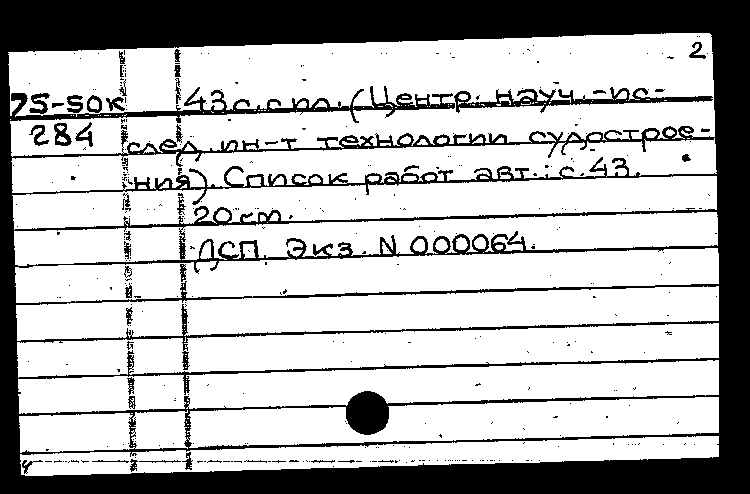 2
75-50к 43 с. с ил. (Центр. науч.-ис-
284 след. ин-т технологии судострое-
ния). Список работ авт.: с. 43.
20 см.
ДСП. Экз. N 000064.